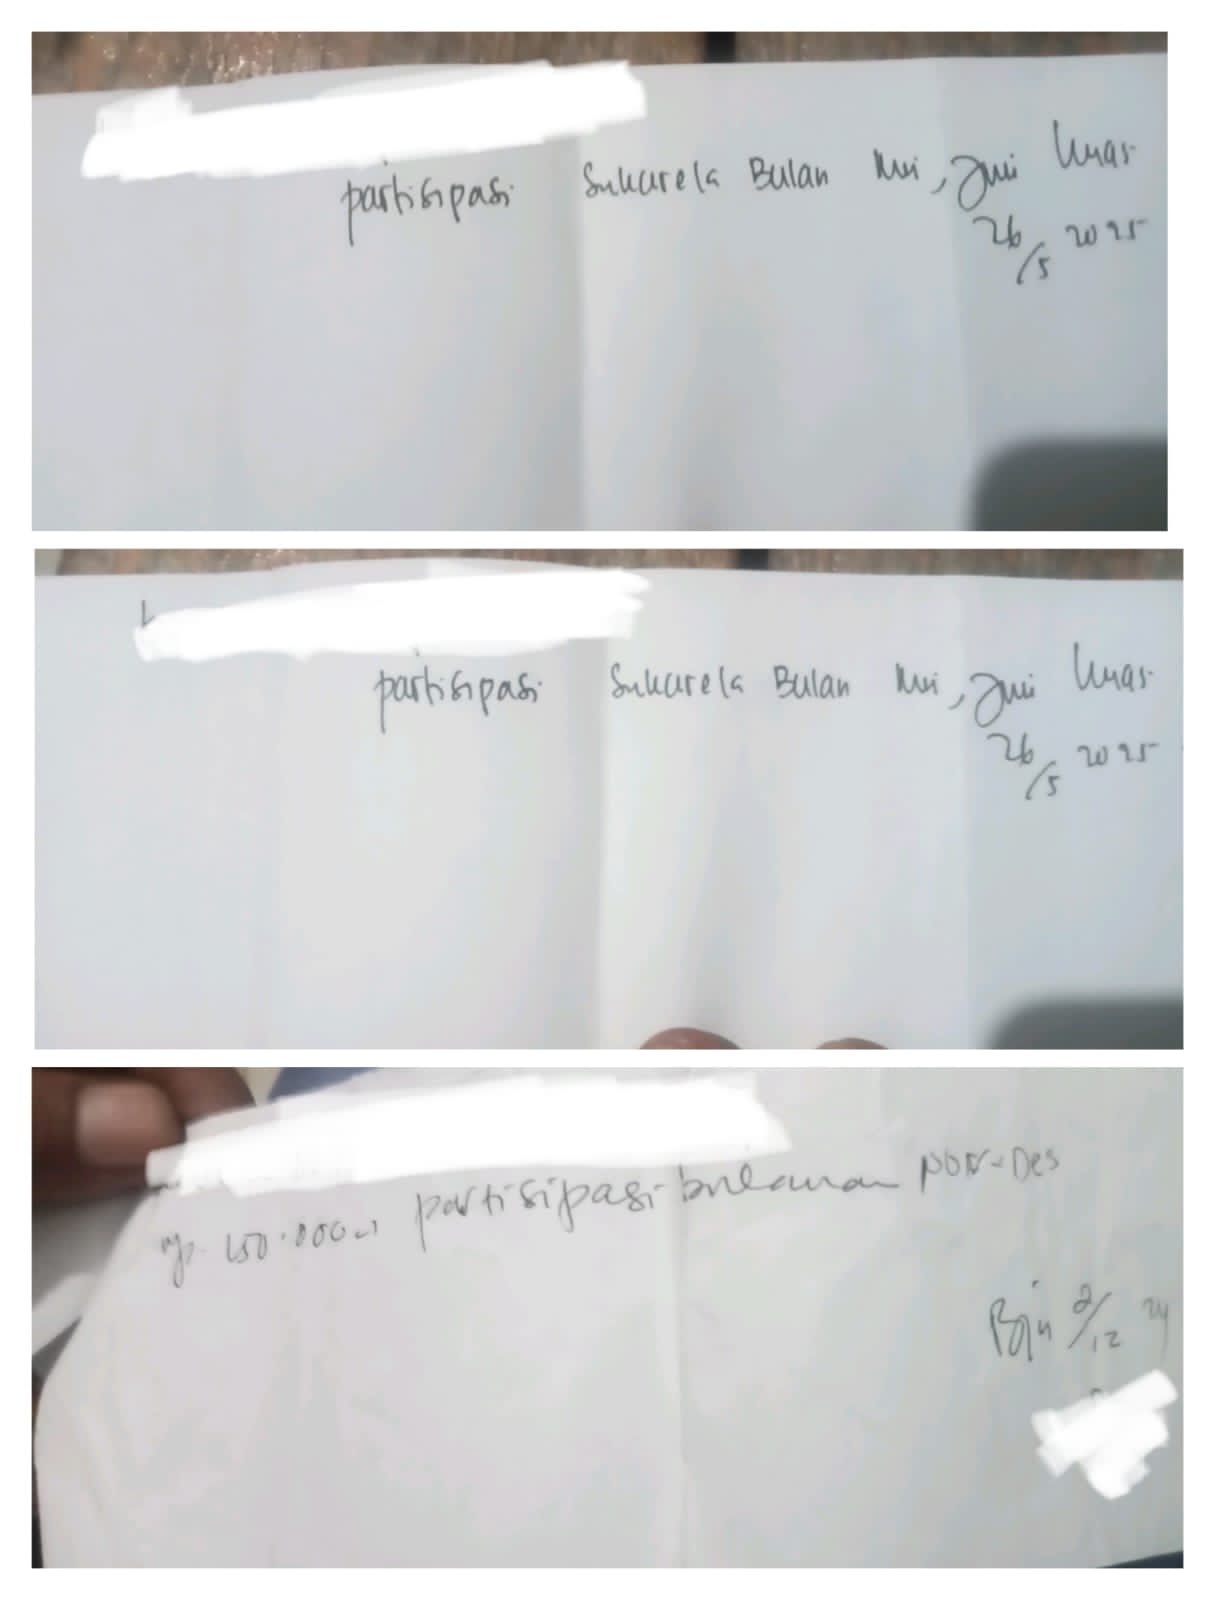 partisipasi Sukarela Bulan Mei, Juni lunas
26/5 2025
partisipasi Sukarela Bulan Mei, Juni lunas
26/5 2025
Rp. 150.000 partisipasi bulanan NOV-Des
2/12 24